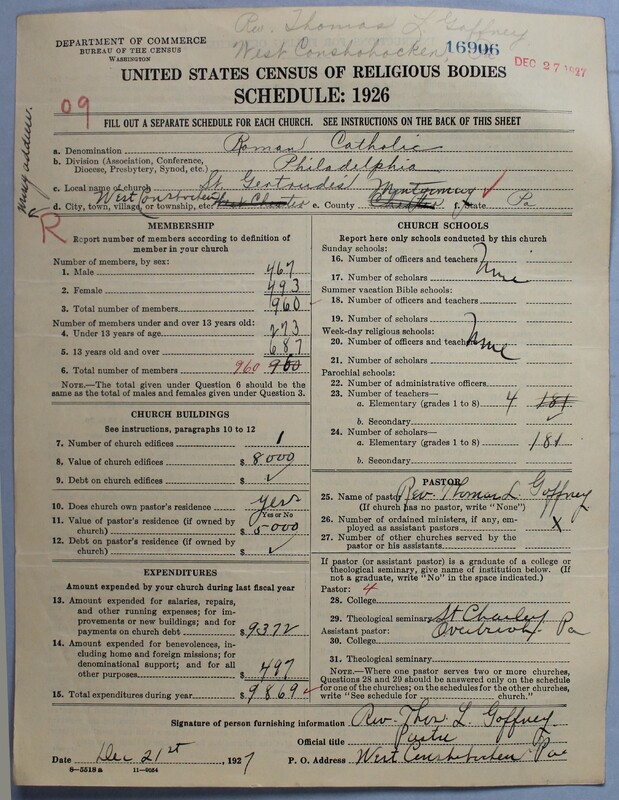 Rev. Thomas L Gaffney
West Conshohocken, Pa
DEPARTMENT OF COMMERCE
BUREAU OF THE CENSUS
WASHINGTON
16906
DEC 27 1927
UNITED STATES CENSUS OF RELIGIOUS BODIES
SCHEDULE: 1926
09
FILL OUT A SEPARATE SCHEDULE FOR EACH CHURCH. SEE INSTRUCTIONS ON THE BACK OF THIS SHEET
a. Denomination Roman Catholic
b. Division (Association, Conference, Diocese, Presbytery, Synod, etc.) Philadelphia
c. Local name of church St. Gertrudes
d. City, town, village, or township, etc. West Conshohocken West Chester e. County Montgomery Chester f. State Pa
R
MEMBERSHIP
Report number of members according to definition of
member in your church
Number of members, by sex:
1. Male 467
2. Female 493
3. Total number of members 960
Number of members under and over 13 years old:
4. Under 13 years of age 273
5. 13 years old and over 687
6. Total number of members 960 960
NOTE.—The total given under Question 6 should be
the same as the total of males and females given under Question 3.
CHURCH BUILDINGS
See instructions, paragraphs 10 to 12
7. Number of church edifices 1
8. Value of church edifices $ 8000
9. Debt on church edifices $
10. Does church own pastor's residence yes
Yes or No
11. Value of pastor's residence (if owned by
church) $ 5000
12. Debt on pastor's residence (if owned by
church) $
EXPENDITURES
Amount expended by your church during last fiscal year
13. Amount expended for salaries, repairs,
and other running expenses; for im-
provements or new buildings; and for
payments on church debt $ 9372
14. Amount expended for benevolences, in-
cluding home and foreign missions; for
denominational support; and for all
other purposes $ 497
15. Total expenditures during year $ 9869
CHURCH SCHOOLS
Report here only schools conducted by this church
Sunday schools:
16. Number of officers and teachers None
17. Number of scholars
Summer vacation Bible schools:
18. Number of officers and teachers
19. Number of scholars
Week-day religious schools:
20. Number of officers and teachers None
21. Number of scholars
Parochial schools:
22. Number of administrative officers
23. Number of teachers—
a. Elementary (grades 1 to 8) 4 181
b. Secondary
24. Number of scholars—
a. Elementary (grades 1 to 8) 181
b. Secondary
PASTOR
25. Name of pastor Rev. Thomas L. Gaffney
(If church has no pastor, write "None")
26. Number of ordained ministers, if any, em-
ployed as assistant pastors x
27. Number of other churches served by the
pastor or his assistants
If pastor (or assistant pastor) is a graduate of a college or
theological seminary, give name of institution below. (If
not a graduate, write "No" in the space indicated.)
Pastor: 4
28. College
29. Theological seminary St Charles
Assistant pastor: Overbrook Pa
30. College
31. Theological seminary
NOTE.—Where one pastor serves two or more churches,
Questions 28 and 29 should be answered only on the schedule
for one of the churches; on the schedules for the other churches,
write "See schedule for church."
Signature of person furnishing information Rev. Thos L. Gaffney
Official title Pastor
Date Dec 21st, 1927 P. O. Address West Conshohocken Pa
8—5518 a 11—9084